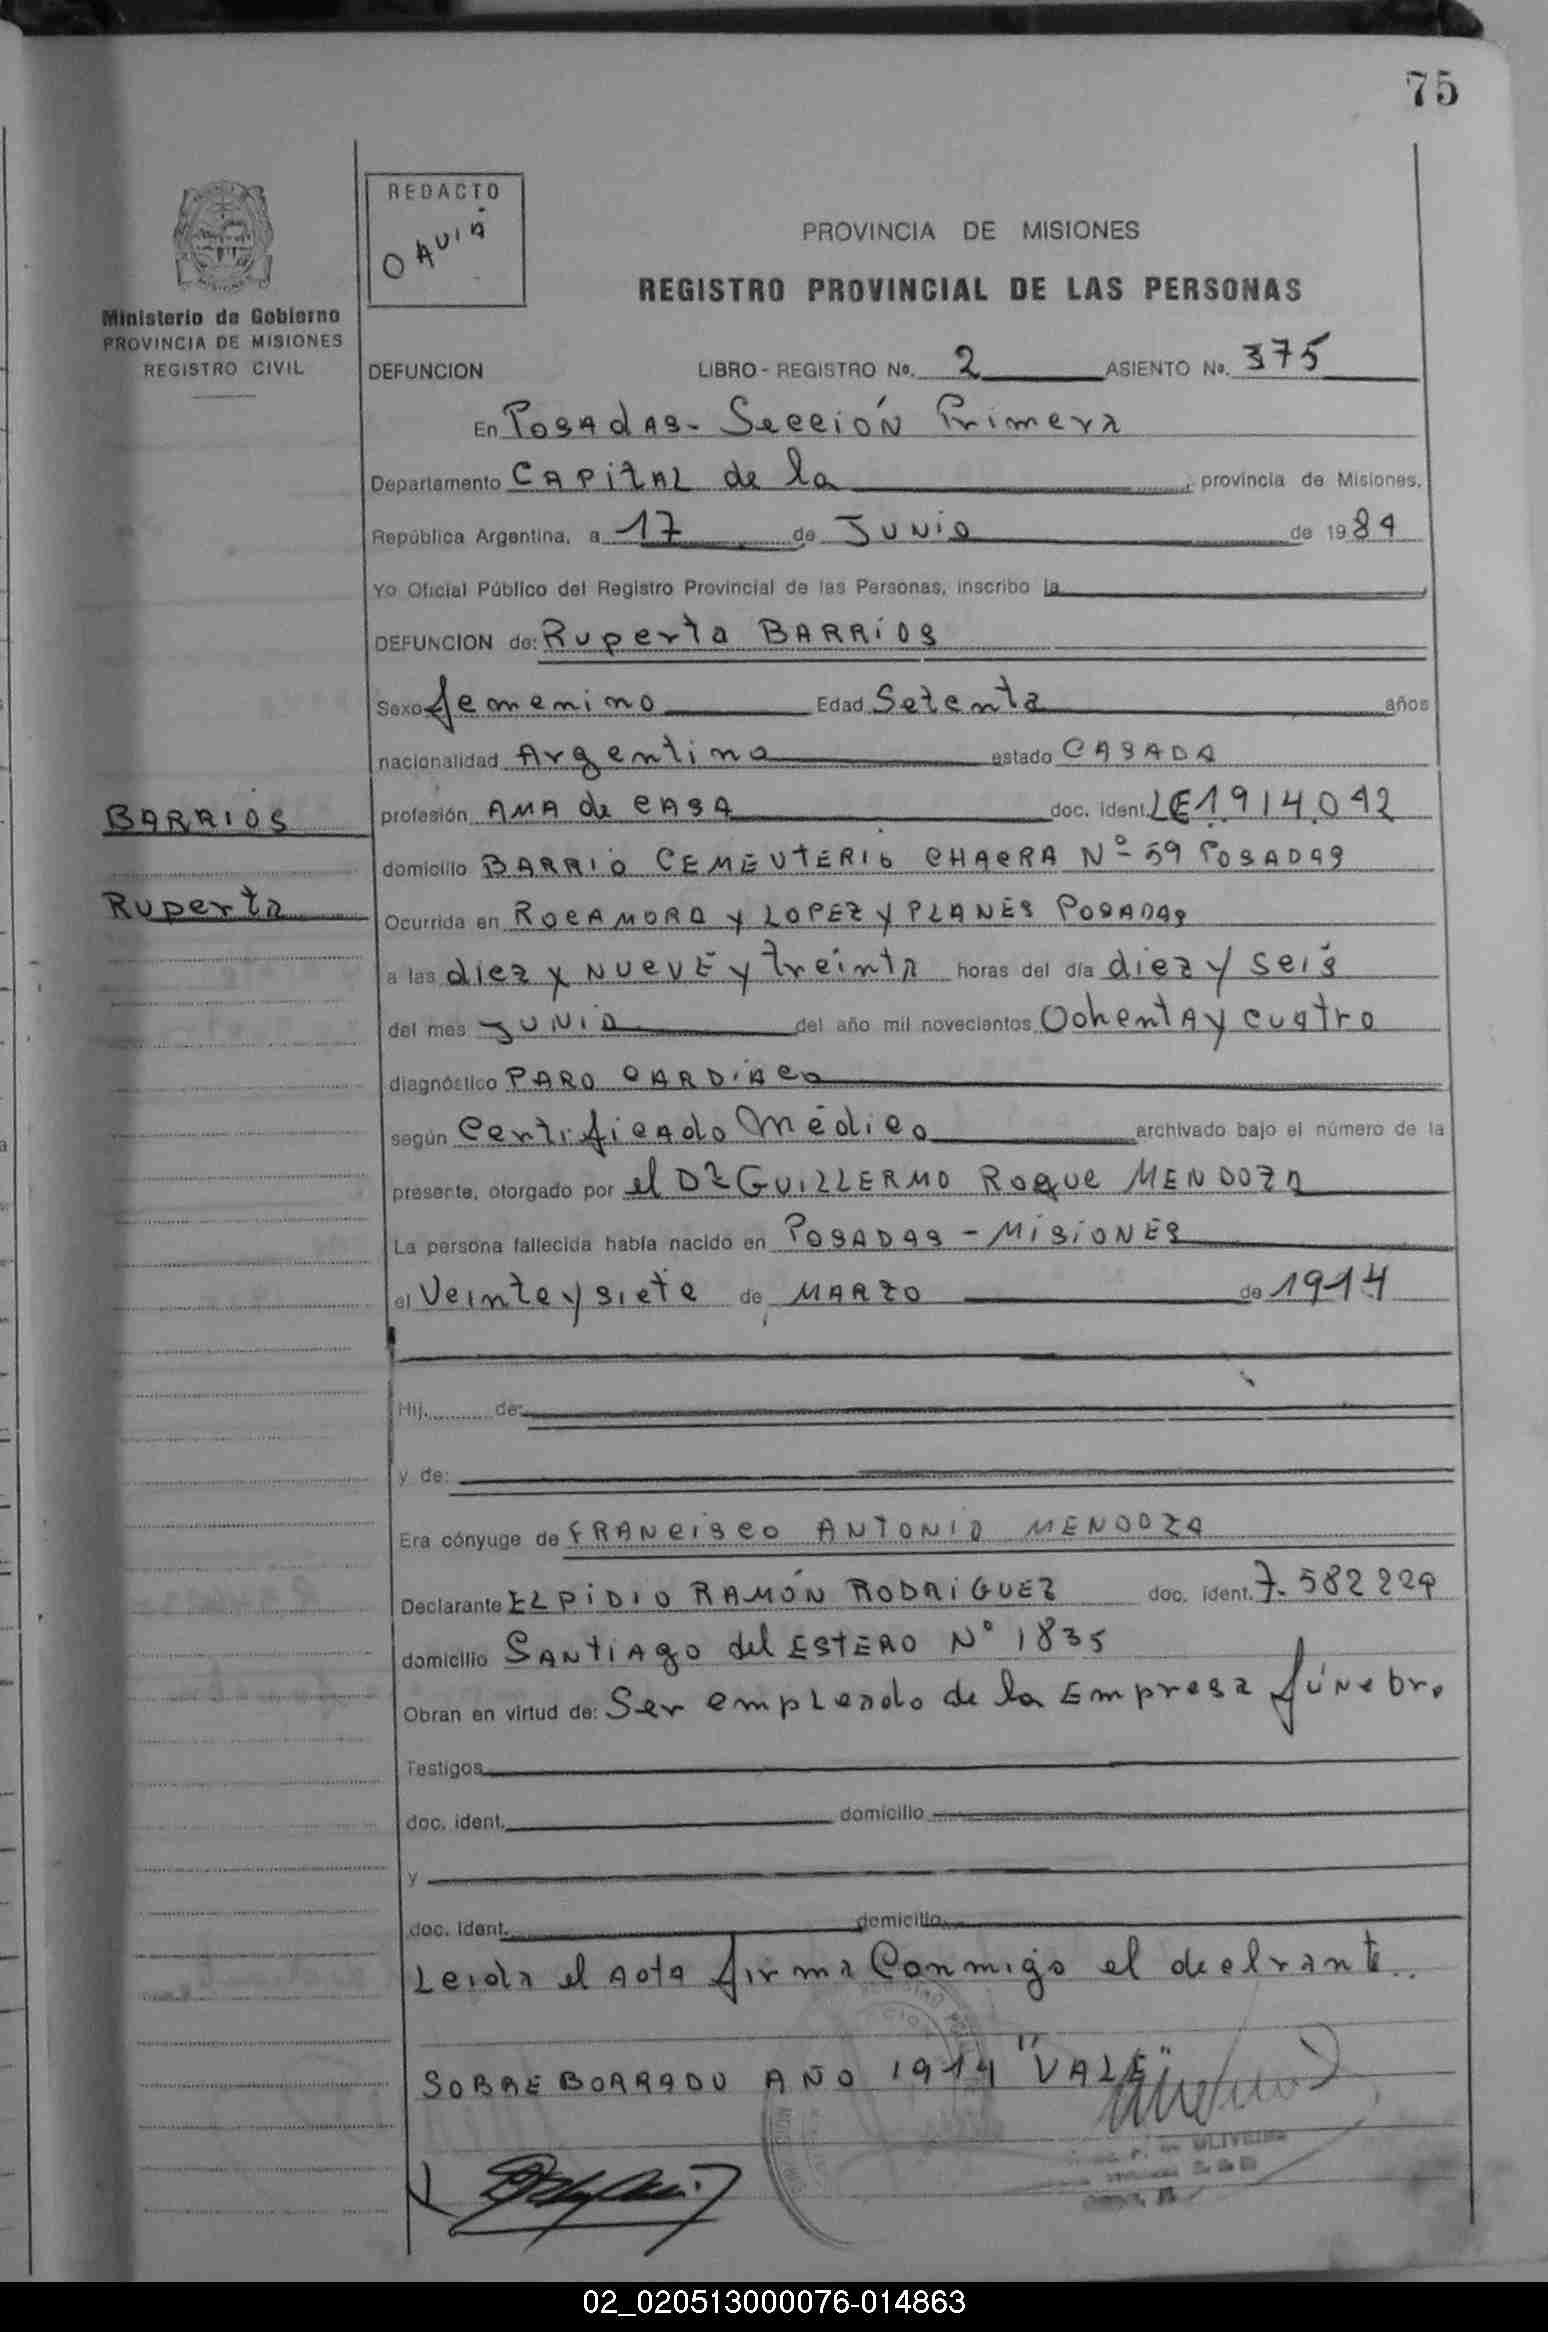 75
REDACTO
PROVINCIA DE MISIONES
REGISTRO PROVINCIAL DE LAS PERSONAS
Ministerio de Gobierno
PROVINCIA DE MISIONES
REGISTRO CIVIL
DEFUNCION LIBRO - REGISTRO No. 2 ASIENTO No. 375
En Posadas - Sección Primera
Departamento CAPITAL de la provincia de Misiones,
República Argentina, a 17 de Junio de 1984
Yo Oficial Público del Registro Provincial de las Personas, inscribo la
DEFUNCION de: Ruperta BARRIOS
Sexo femenino Edad Setenta años
nacionalidad Argentina estado CASADA
BARRIOS
profesión AMA de CASA doc. ident. LE 1.914.042
domicilio BARRIO CEMENTERIO CHACRA Nº 59 POSADAS
Ruperta
Ocurrida en ROCAMORA y LOPEZ y PLANES POSADAS
a las diez y nueve y treinta horas del día diez y seis
del mes JUNIO del año mil novecientos Ochenta y cuatro
diagnóstico PARO CARDIACO
según Certificado Médico archivado bajo el número de la
presente, otorgado por el Dr GUILLERMO Roque MENDOZA
La persona fallecida había nacido en POSADAS - MISIONES
el Veinte y siete de MARZO de 1914
Hij de:
y de:
Era cónyuge de FRANCISCO ANTONIO MENDOZA
Declarante ELPIDIO RAMÓN RODRIGUEZ doc. ident. 7.582229
domicilio SANTIAGO del ESTERO Nº 1835
Obran en virtud de: Ser empleado de la Empresa fúnebre
Testigos
doc. ident. domicilio
y
doc. ident. domicilio
Leida el Acta firma Conmigo el declrante..
SOBRE BORRADO AÑO 1914 "VALE"
OLIVEIRA
02_020513000076-014863